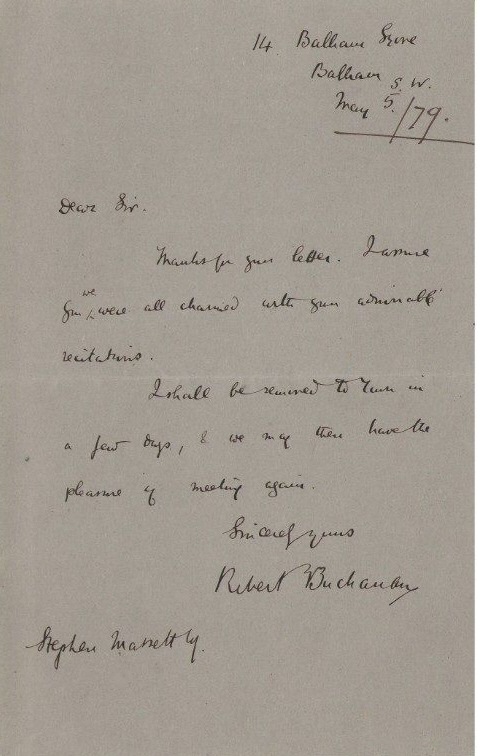 14 Balham Grove
Balham S.W.
May 5./79.
Dear Sir.
Thanks for your letter. I assure
you we were all charmed with your admirable
recitations.
I shall be removed to Town in
a few days, & we may then have the
pleasure of meeting again.
Sincerely yours
Robert Buchanan
Stephen Massett Esq.